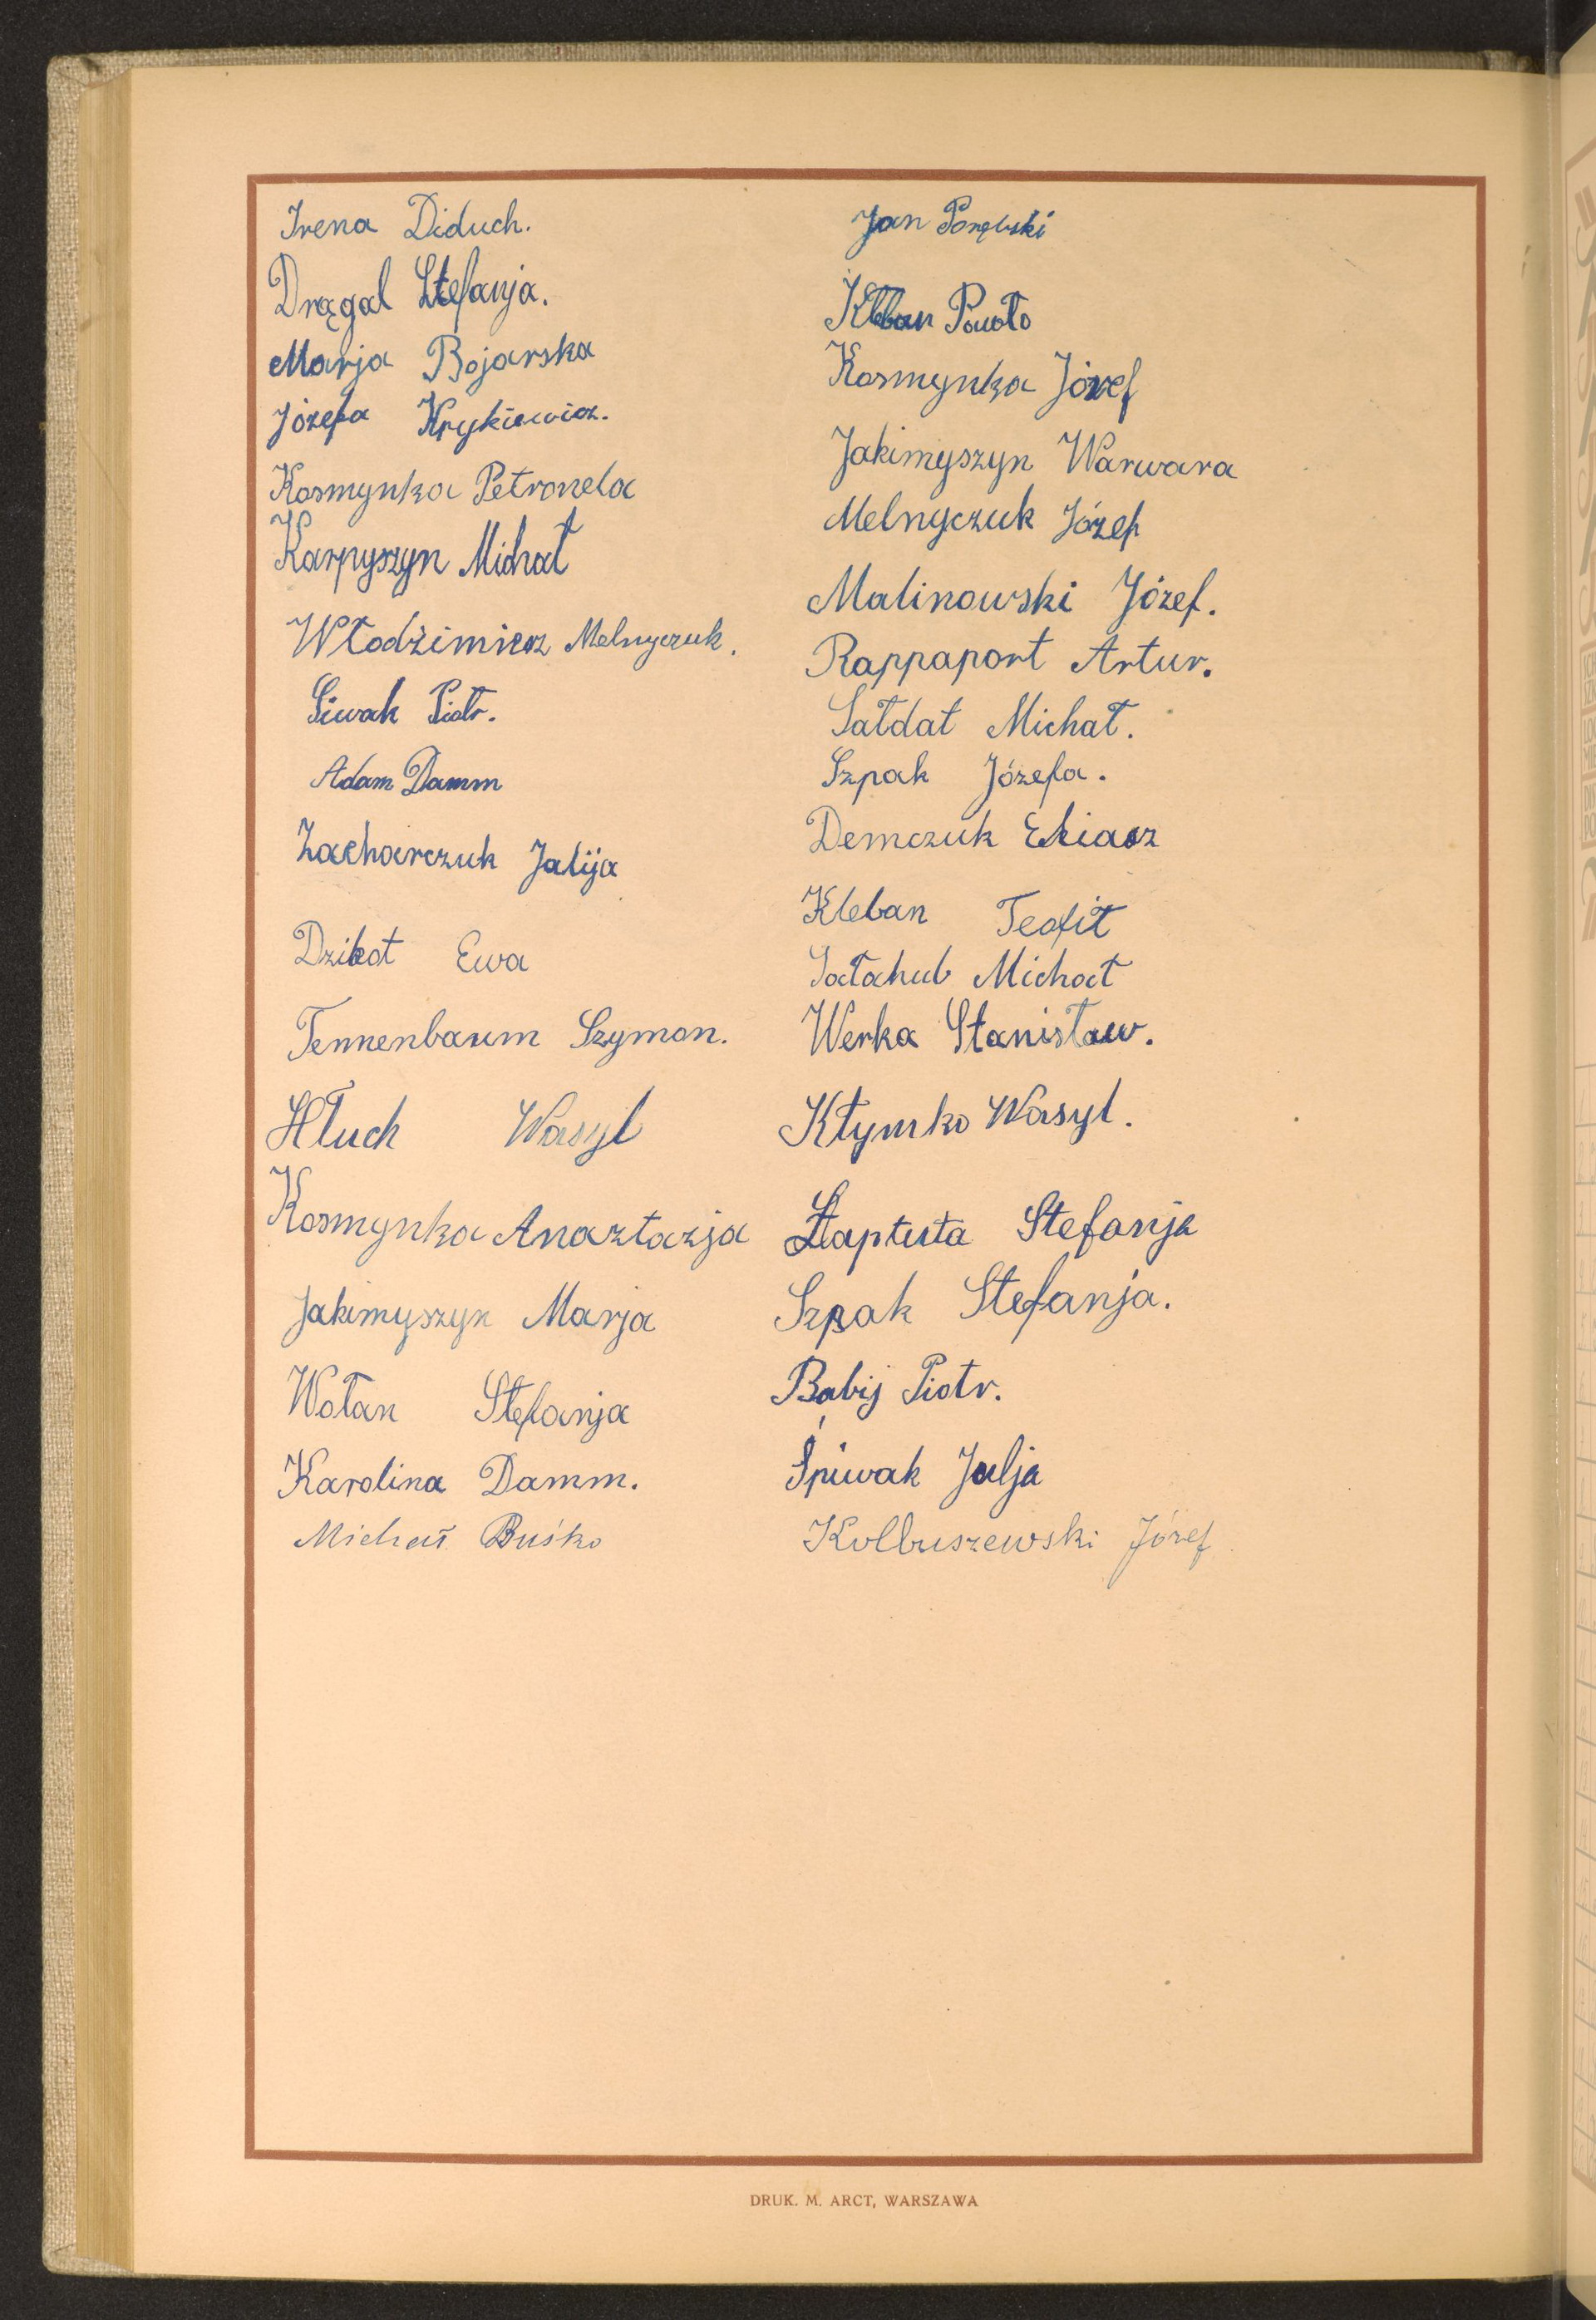 Irena Diduch.
Drągal Stefanja.
Marja Bojarska
Józefa Krykiewicz.
Kosmynka Petronela
Karpyszyn Michał
Włodzimierz Melnyczuk.
Siwak Piotr.
Adam Damm
Zacharczuk Julija
Ewa
Tennenbaum Szymon.
Hłuch Wasyl
Kosmynka Anaztazja
Jakimyszyn Marja
Wołan Stefanja
Karolina Damm.
Michał Buśko
Jan Porębski
Kleban Pawło
Kosmynka Józef
Jakimyszyn Warwara
Melnyczuk Józef
Malinowski Józef.
Rappaport Artur.
Sałdat Michał.
Szpak Józefa.
Demczuk Eliasz
Kleban Teofił
Sałahub Michał
Werka Stanisław.
Kłymko Wasyl.
Stefanja
Szpak Stefanja.
Babij Piotr.
Śpiwak Julja
Kolbuszewski Józef
DRUK. M. ARCT, WARSZAWA